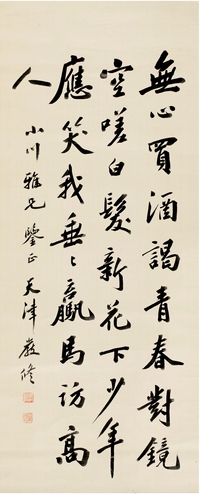 無心買酒謁青春對鏡
空嗟白髮新花下少年
應笑我垂〻羸馬訪高
人
小川雅兄鑒正 天津嚴修